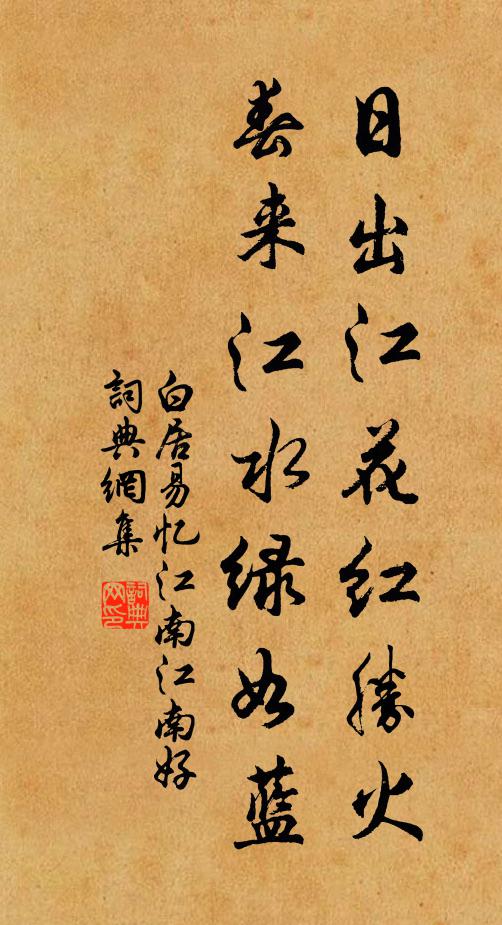 日出江花红勝火
春来江水绿如藍
白居易忆江南江南好
詞典網集
詞典
网印